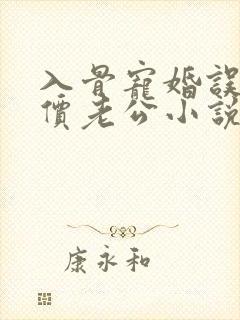 入骨寵婚誤
價老公小説
康永和